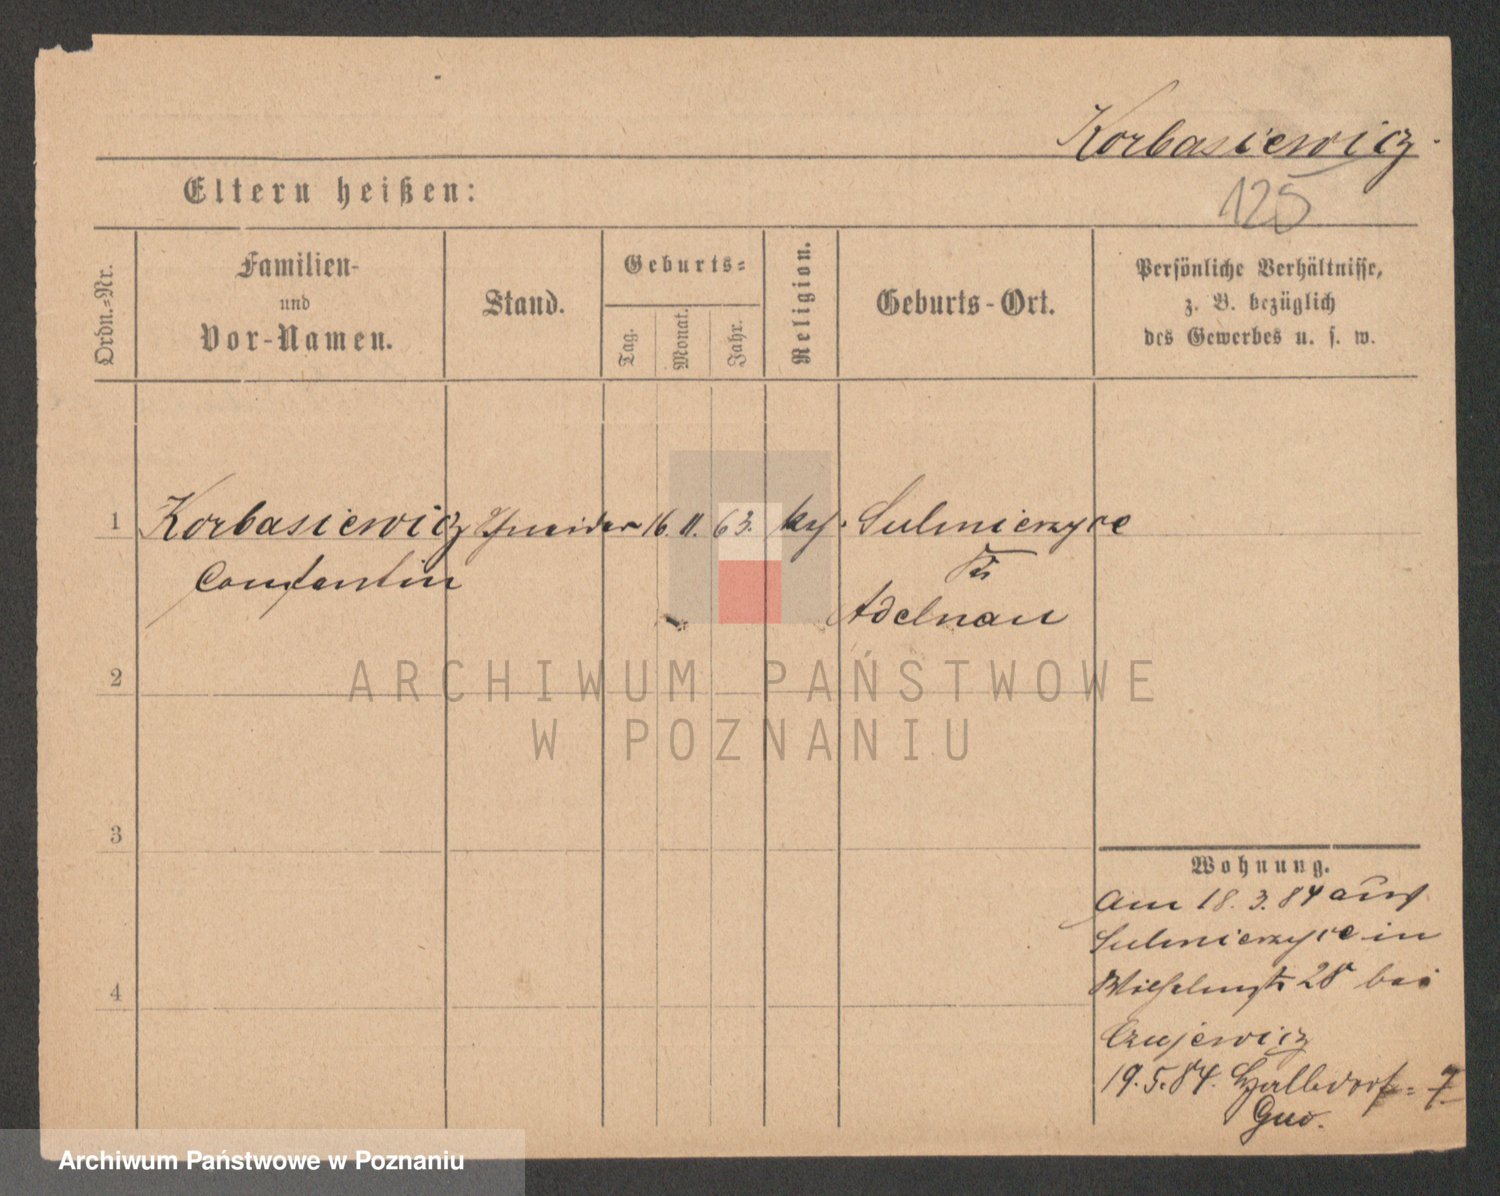 Korbasiewicz.
125
Eltern heißen:
Ordn.-Nr.
Familien-
und
Vor-Namen.
Stand.
Geburts-
Tag.
Monat.
Jahr.
Religion.
Geburts-Ort.
Persönliche Verhältnisse,
z. B. bezüglich
des Gewerbes u. s. w.
1 Korbasiewicz Schneider 16. 11. 63. kath. Sulmierzyce
Constantin
Adelnau
2
3
4
Wohnung.
Am 18. 3. 84 aus
Sulmierzyce in
Wilhelmstr 28 bei
Czujewicz
19. 5. 84.
ARCHIWUM PAŃSTWOWE
W POZNANIU
Archiwum Państwowe w Poznaniu